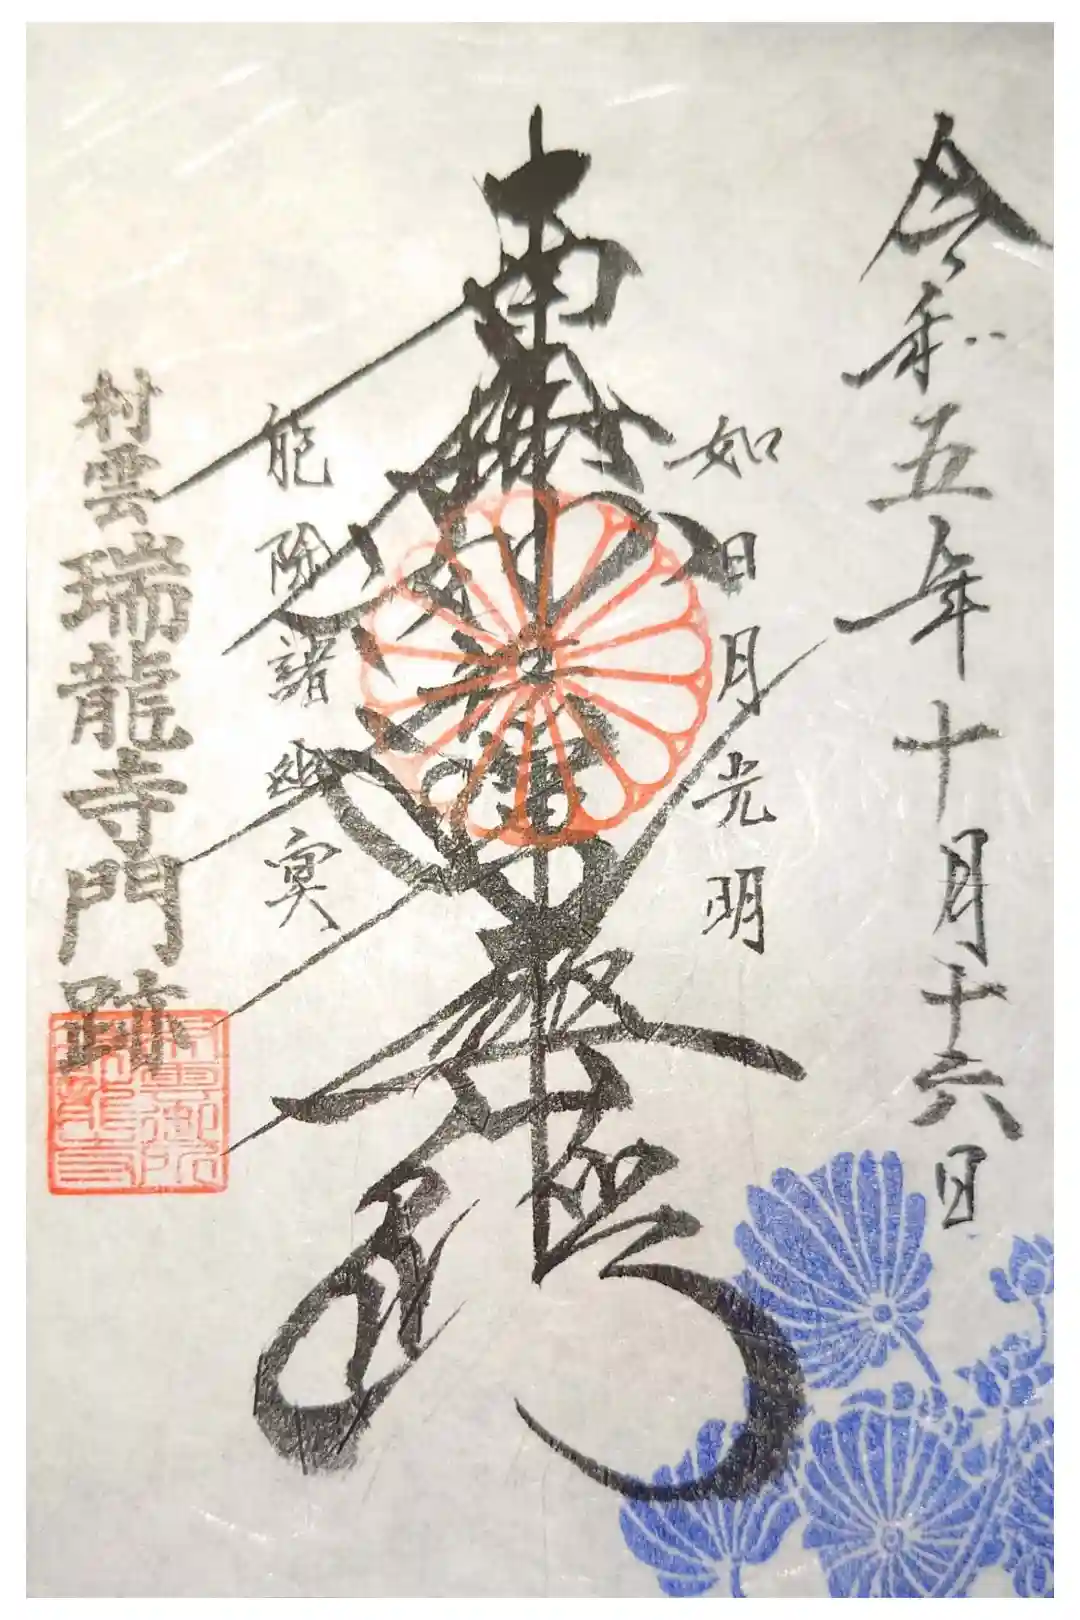 令和五年十月十六日
如日月光明
南無妙法蓮華經
能除諸幽冥
村雲瑞龍寺門跡